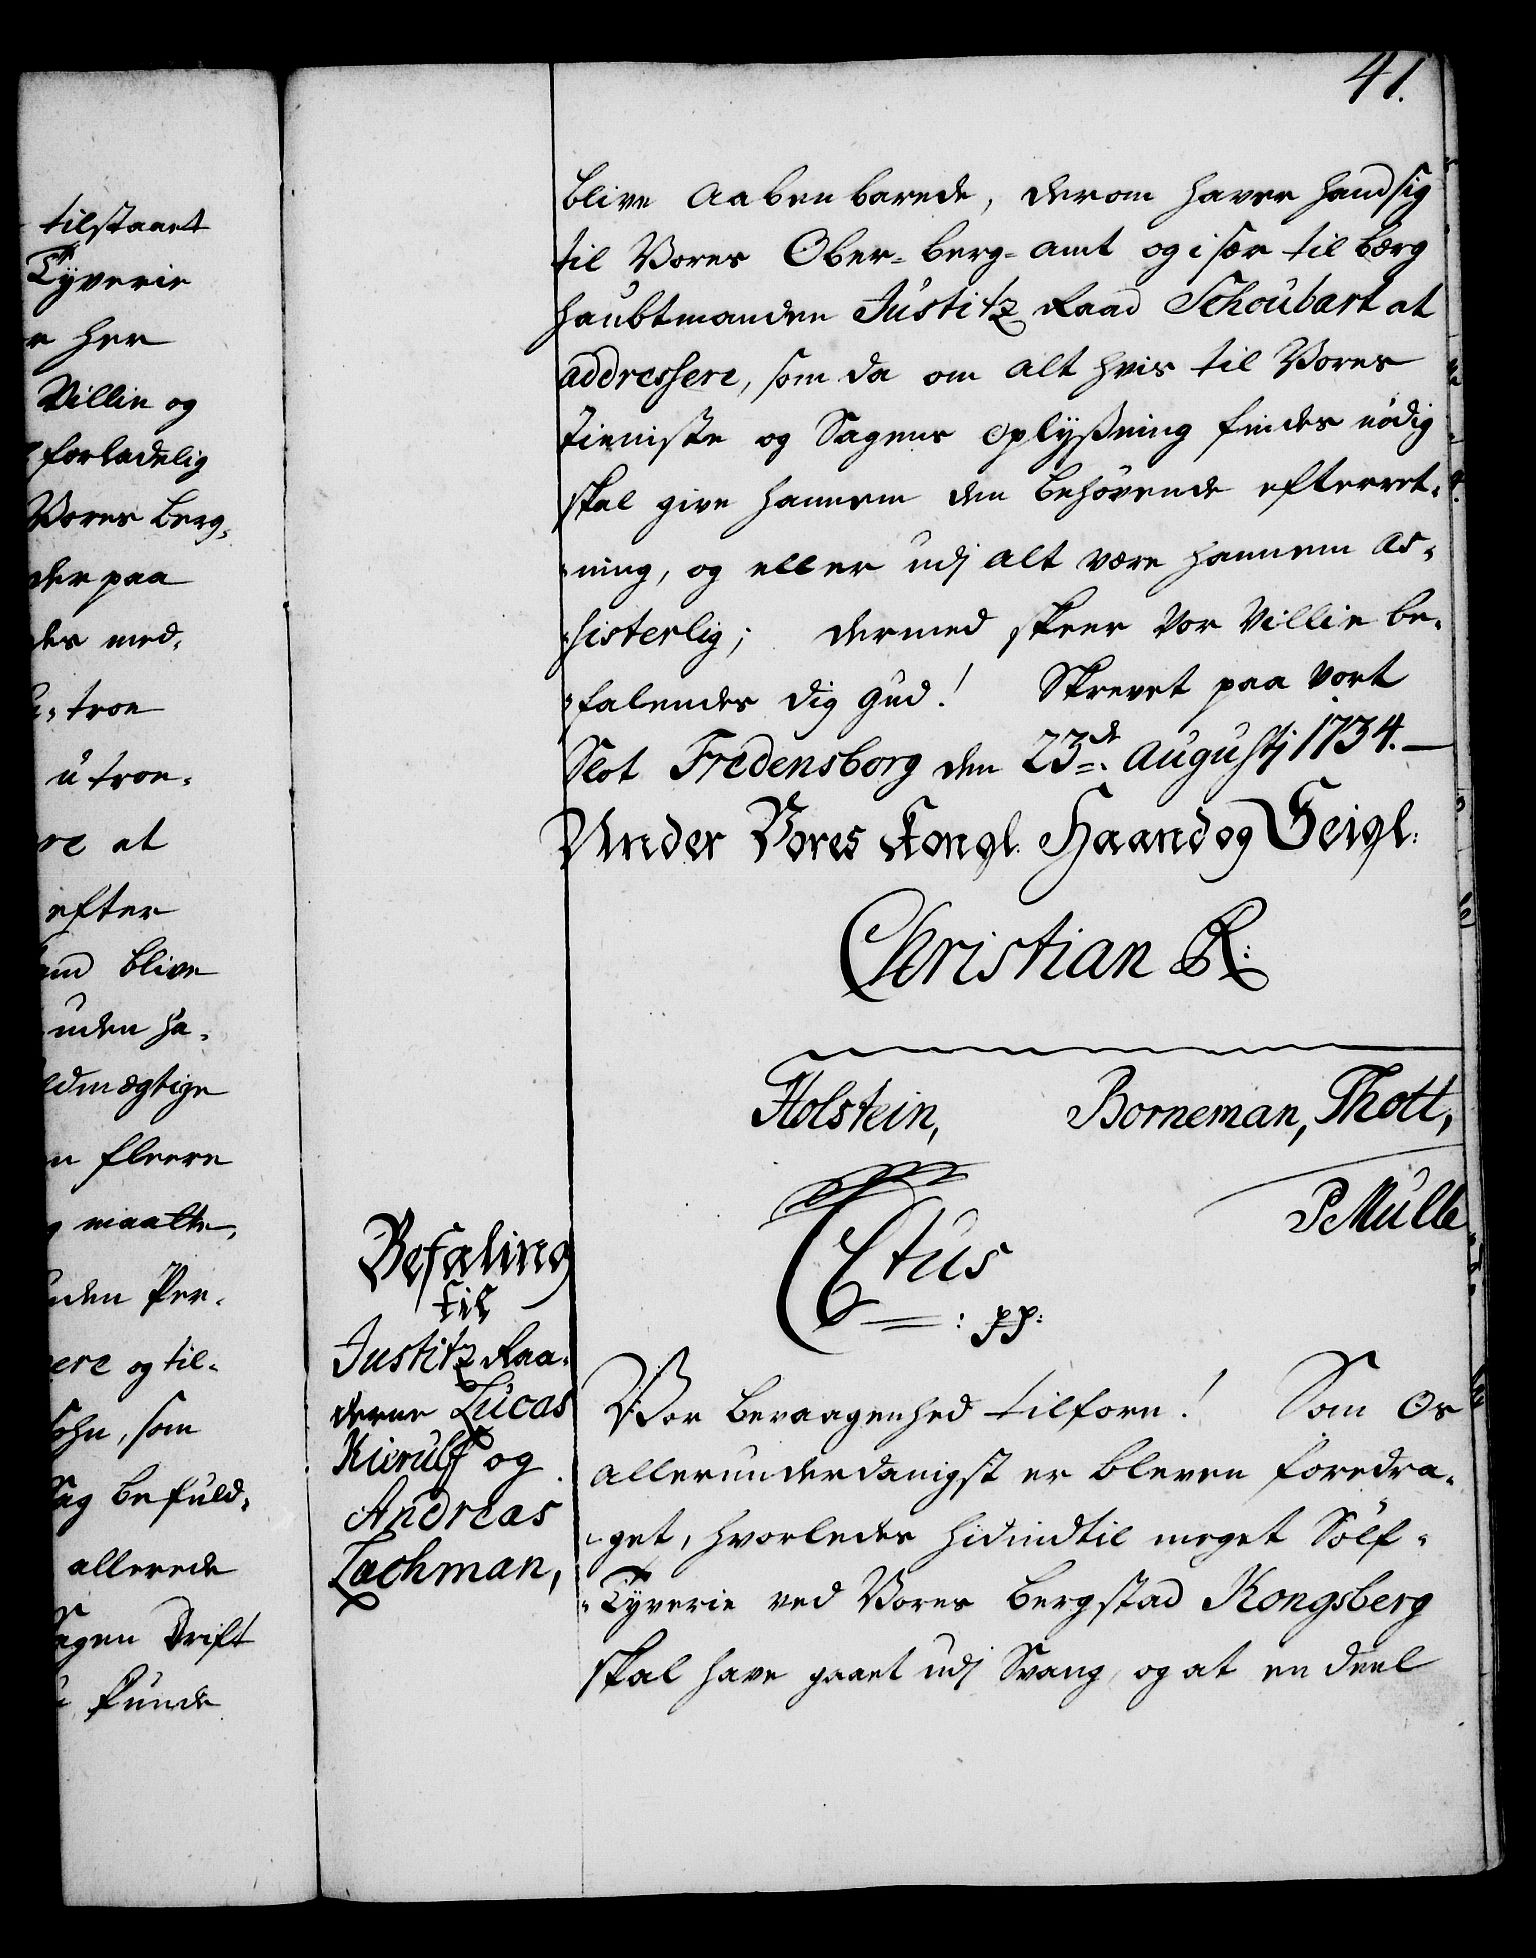 41.
tilstaaet
Tyverie
her
Villie og
forladelig
Vores Berg-
der paa
des med-
troe
u troe-
re at
efter
blive
uden ha-
ldmægtige
fleere
maatte,
nden Per-
ere og til-
sohn, som
Sag befuld-
allerede
Sagen Drift
kunde
blive aabenbarede, derom haver hand sig
til Vores Ober-Berg-Amt og i sær til Berg
haubtmanden Justitz Raad Schoubart at
addressere, som da om alt hvis til Vores
tieniste og Sagens oplyßning findes nödig
skal give hannem den behövende efterret-
-ning, og eller udj alt være hannem as-
-sisterlig; dermed skeer Vor Villie be-
-falendes dig Gud! Skrevet paa Vort
Slot Fredensborg den 23de Augustj 1734.—
Under Vores Kongl. Haand og Seigl:
Christian R:
Holstein, Borneman, Thott,
P Mülle
Befaling
til
Justitz Raa-
derne Lucas
Kierulf og
Andreas
Lachman,
CStus
: pp:
Vor bevaagenhed tilforn! Som Os
allerunderdanigst er bleven foredra-
-get, hvorledes hidindtil meget Sölf-
-Tyverie ved Vores Bergstad Kongsberg
skal have gaaet udj Svang, og at en deel